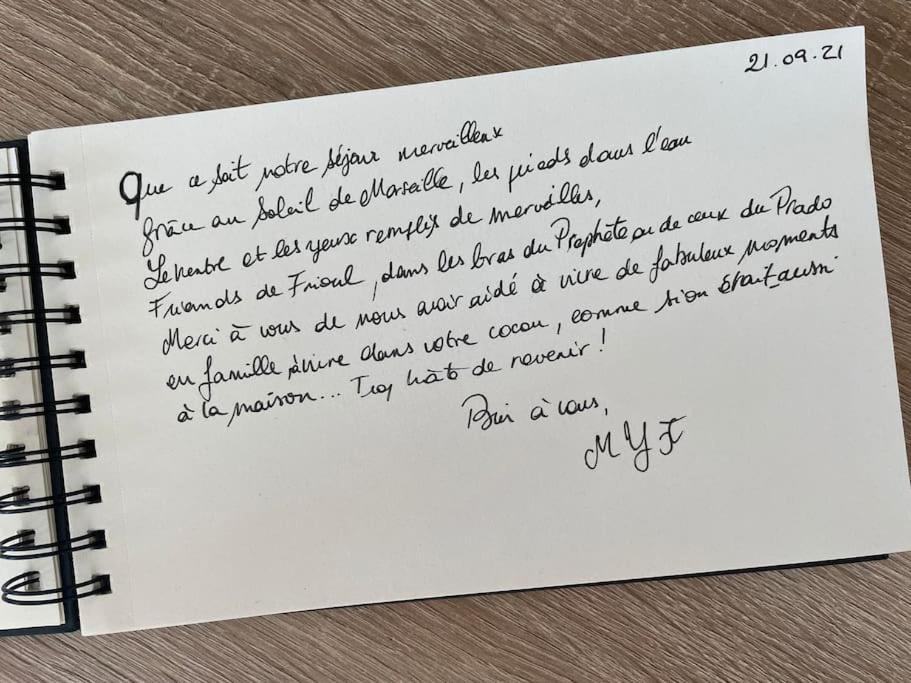 21.09.21
Que ce soit notre séjour merveilleux
grâce au soleil de Marseille, les pieds dans l'eau
Le ventre et les yeux remplis de merveilles,
Friands de Frioul, dans les bras du Prophète ou de ceux du Prado
Merci à vous de nous avoir aidé à vivre de fabuleux moments
en famille, à vivre dans votre cocon, comme si on était aussi
à la maison... Trop hâte de revenir !
Bien à vous,
M Y F